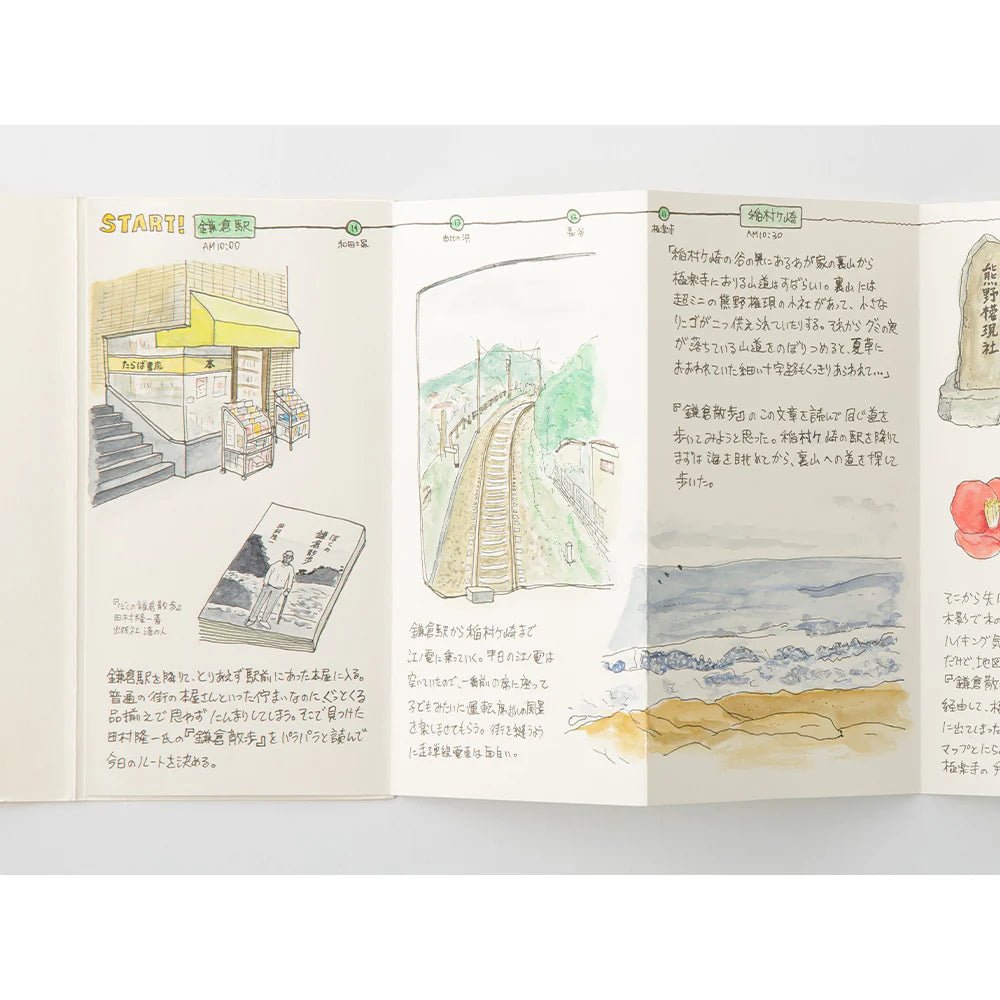 START!
鎌倉駅
AM10:00
14
和田塚
13
由比ヶ浜
12
長谷
11
極楽寺
稲村ヶ崎
AM10:30
たらば書房
本
ぼくの
鎌倉散歩
田村隆一
『ぼくの鎌倉散歩』
田村隆一著
出版社 港の人
鎌倉駅を降りて、とりあえず駅前にあった本屋に入る。
普通の街の本屋さんといった佇まいなのにぐっとくる
品揃えで思わずにんまりしてしまう。そこで見つけた
田村隆一氏の『鎌倉散歩』をパラパラと読んで
今日のルートを決める。
鎌倉駅から稲村ヶ崎まで
江ノ電に乗っていく。平日の江ノ電は
空いていたので、一番前の席に座って
子どもみたいに運転席越しの風景
を楽しませてもらう。街を縫うよう
に走る単線電車は面白い。
「稲村ヶ崎の谷の奥にあるわが家の裏山から
極楽寺におりる山道はすばらしい。裏山には
超ミニの熊野権現の小社があって、小さな
リンゴが二つ供えられていたりする。それからグミの実
が落ちている山道をのぼりつめると、夏草に
おおわれていた細い十字路もくっきりあらわれて…」
『鎌倉散歩』のこの文章を読んで同じ道を
歩いてみようと思った。稲村ヶ崎の駅を降りて
まずは海を眺めてから、裏山への道を探して
歩いた。
熊野權現社
そこから先に
木影で木の
ハイキング気
だけど地図
『鎌倉散歩
経由して、極
に出てしまった
マップとにら
極楽寺の